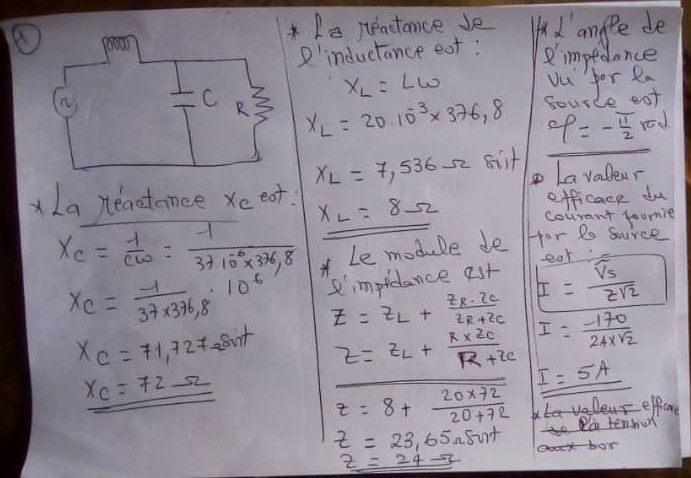 1
C
R
* La réactance Xc est :
Xc = 1/cω = 1/37.10⁻⁶ x 376,8
Xc = 1/37x376,8 . 10⁶
Xc = 71,727 Ω soit
Xc = 72 Ω
* La réactance de
l'inductance est :
X_L = Lω
X_L = 20.10⁻³ x 376,8
X_L = 7,536 Ω soit
X_L = 8 Ω
* Le module de
l'impédance est
Z = Z_L + Z_R . Zc / Z_R + Zc
Z = Z_L + R x Zc / R + Zc
Z = 8 + 20x72 / 20+72
Z = 23,65 Ω soit
Z = 24 Ω
* L'angle de
l'impédance
vu par la
source est
φ = -π/2 rad
La valeur
efficace du
courant fournie
par la source
est :
I = V̂s / Z√2
I = -170 / 24x√2
I = 5A
* La valeur efficace
de la tension
aux bor